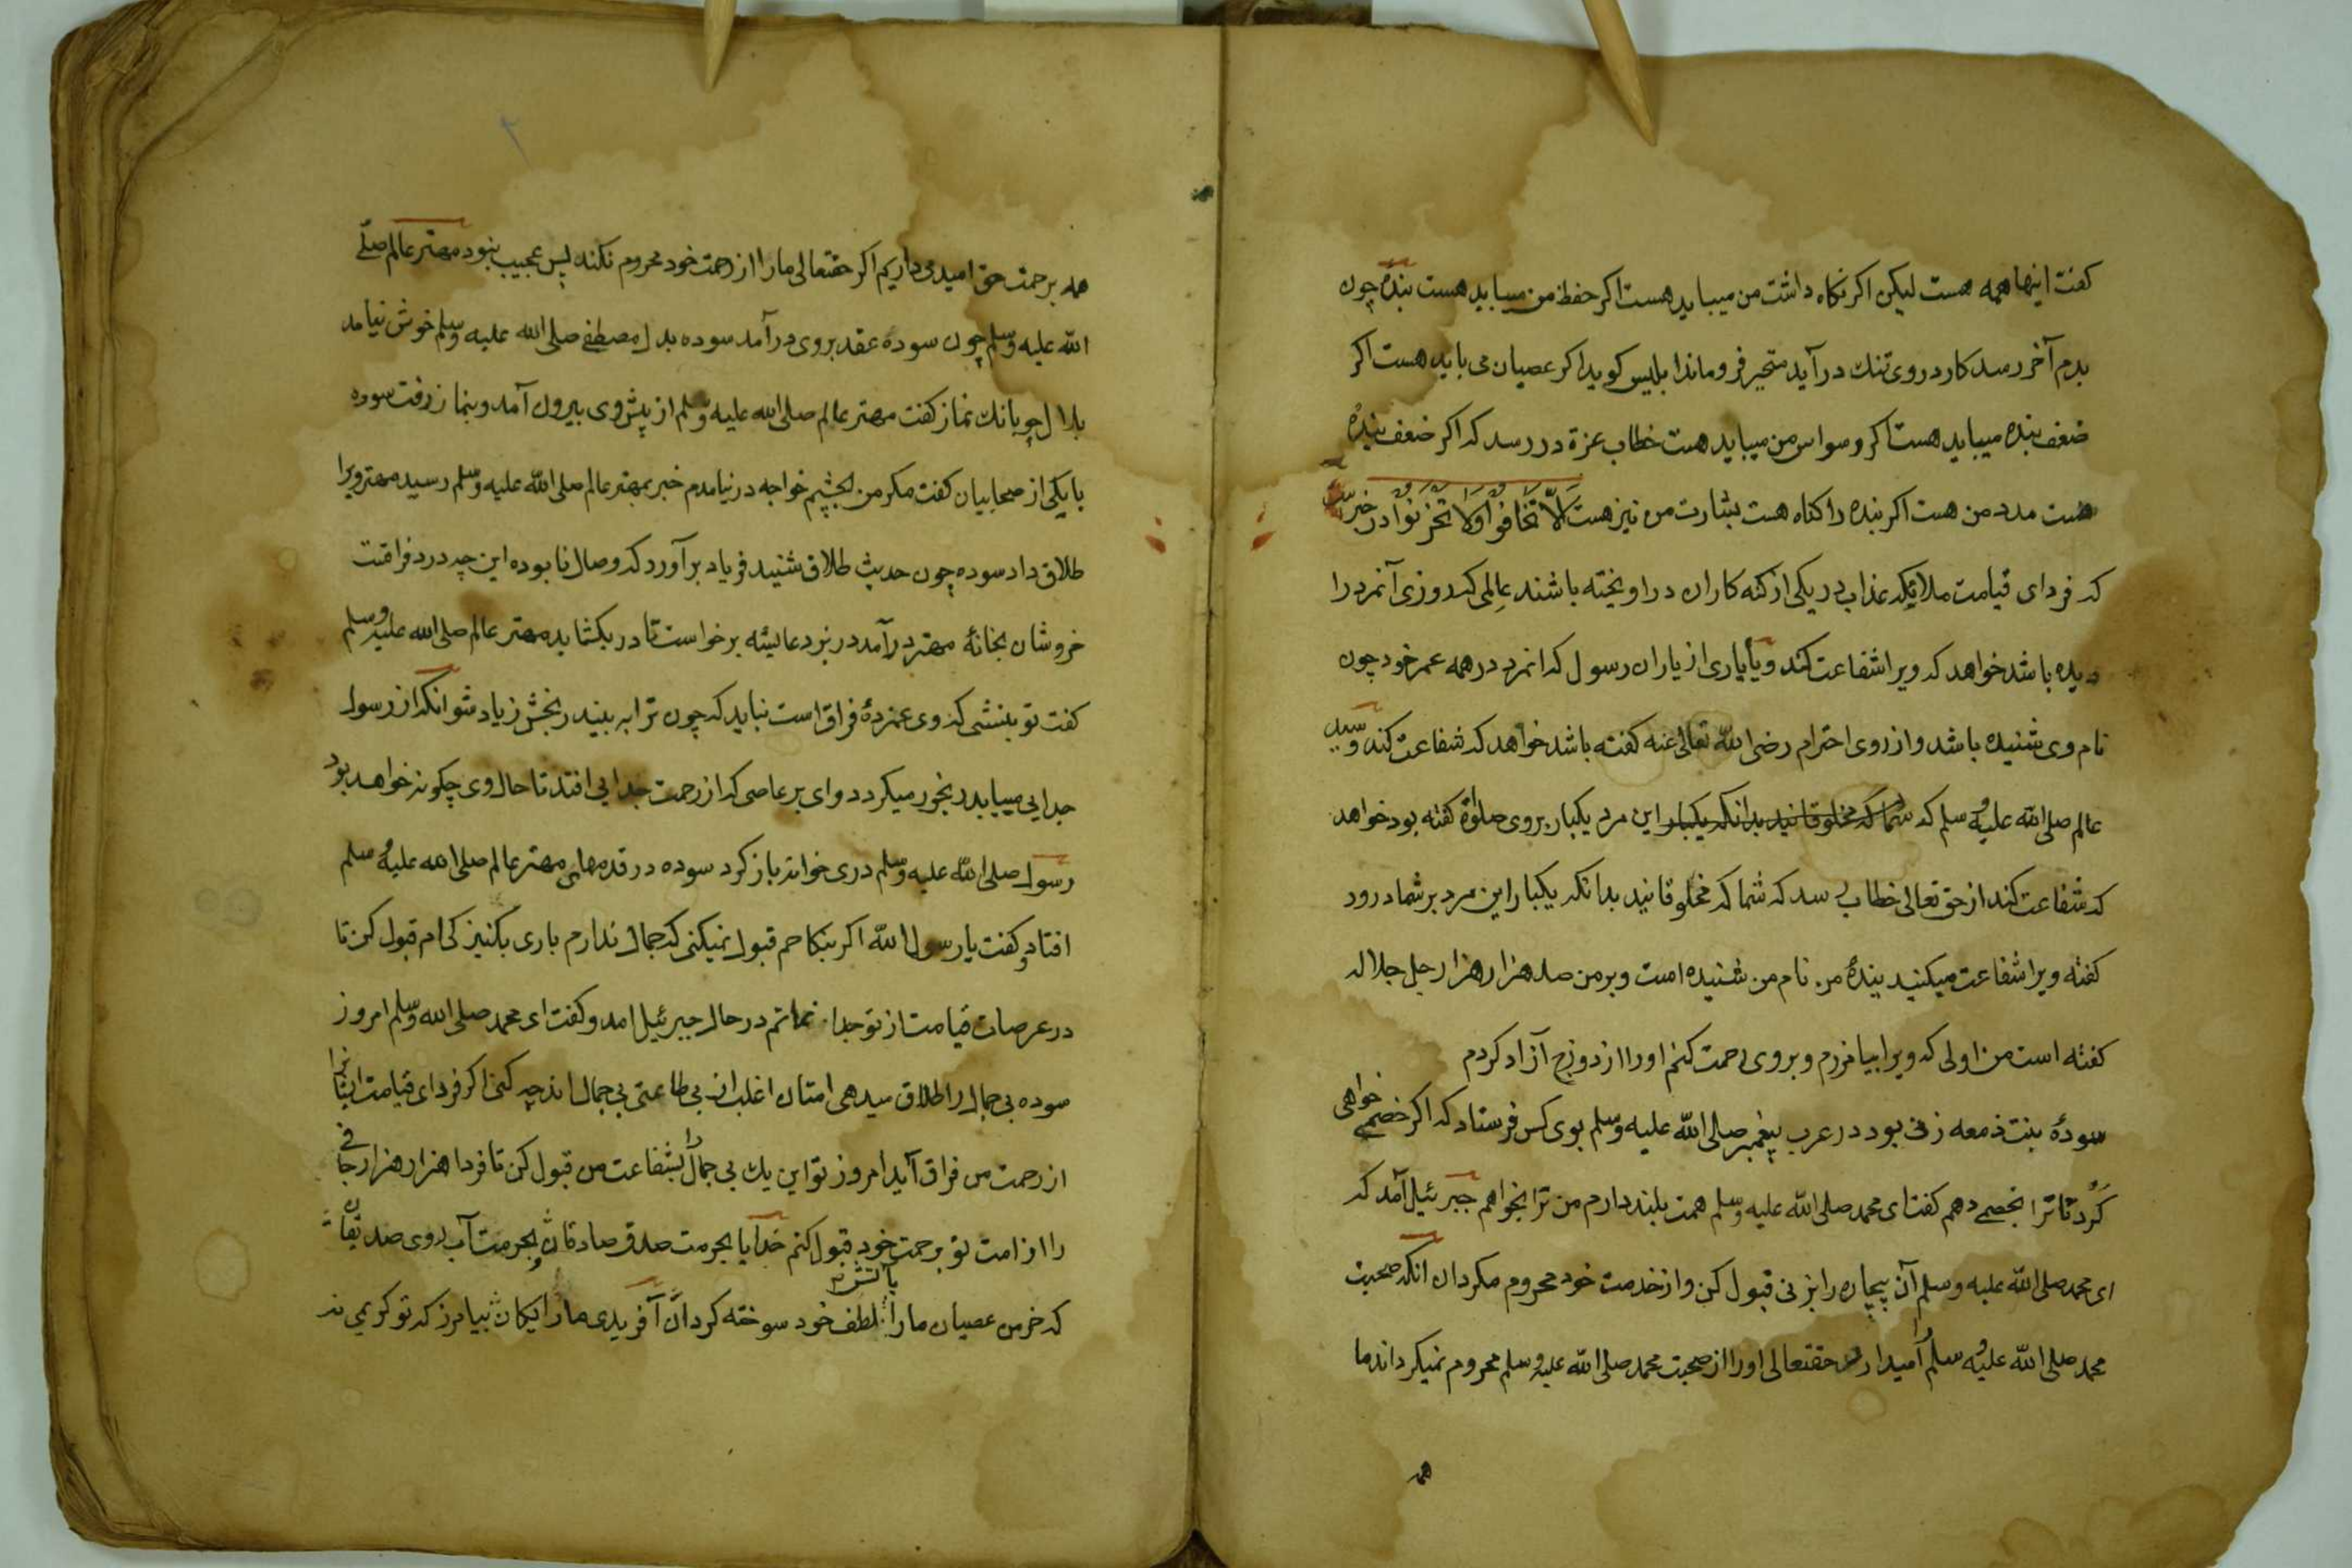 كفت اينها همه هست ليكن اكر نكاه داشت من ميبايد هست اكر حفظ من ميبايد هست بندهٔ چون
بدم آخر رسد كار در وى تنك درآيد متحير فروماند ابليس كويد اكر عصيان مى بايد هست اكر
ضعف بنده ميبايد هست اكر وسواس من ميبايد هست خطاب عزة در رسد كه اكر ضعف بنده
هست مدد من هست اكر بنده را كناه هست بشارت من نيز هست اَلَّا تَخَافُوْا وَلَا تَحْزَنُوْا در خبرست
كه فرداى قيامت ملائكه عذاب در يكى از كنه كاران در اويخته باشند عالمى كه روزى آنمرد را
ديده باشد خواهد كه ويرا شفاعت كند و يا يارى از ياران رسول كه انمرد در همه عمر خود چون
نام وى شنيده باشد و از روى احترام رضى الله تعالى عنه كفته باشد خواهد كه شفاعت كند و سيد
عالم صلى الله عليه وسلم كه شما كه مخلوقانيد بدانكه يكبار اين مرد يكبار بروى صلوة كفته بود خواهد
كه شفاعت كند از حق تعالى خطاب رسد كه شما كه مخلوقانيد بدانكه يكبار اين مرد بر شما درود
كفته ويرا شفاعت ميكنيد بندهٔ من نام من شنيده است و بر من صد هزار هزار جل جلاله
كفته است من اولى كه ويرا بيامرزم و بروى رحمت كنم اورا از دوزخ آزاد كردم
سودهٔ بنت ذمعه زنى بود در عرب پيغمبر صلى الله عليه وسلم بوى كس فرستاد كه اكر خصمى خواهى
كرد تا ترا بخصمى دهم كفت اى محمد صلى الله عليه وسلم همت بلند دارم من ترا بخواهم جبرئيل آمد كه
اى محمد صلى الله عليه وسلم آن بيچاره را بزنى قبول كن و از خدمت خود محروم مكردان انكه صحبت
محمد صلى الله عليه وسلم را اميدارد حقتعالى اورا از صحبت محمد صلى الله عليه وسلم محروم نميكرداند ما
همه
همه برحمت حق اميد مى داريم اكر حقتعالى مارا از رحمت خود محروم نكند پس عجيب نبود مهتر عالم صلى
الله عليه وسلم چون سوده عقد بروى درآمد سوده بدل مصطفى صلى الله عليه وسلم خوش نيامد
بلال چو بانك نماز كفت مهتر عالم صلى الله عليه وسلم از پيش وى بيرون آمد و بنماز رفت سوده
با يكى از صحابيان كفت مكر من بچشم خواجه در نيامدم خبر بمهتر عالم صلى الله عليه وسلم رسيد مهتر ويرا
طلاق داد سوده چون حديث طلاق شنيد فرياد برآورد كه وصال نا بوده اين چه درد فراقت
خروشان بخانهٔ مهتر درآمد در بزد عايشه برخواست تا در بكشايد مهتر عالم صلى الله عليه وسلم
كفت تو بنشى كه وى غمزدهٔ فراق است نبايد كه چون ترا به بيند رنجش زياد شو انكه از رسول
جدايى مييابد رنجور ميكردد واى بر عاصى كه از رحمت جدايى افتد تا حال وى چكونه خواهد بود
رسول صلى الله عليه وسلم درى خوانه باز كرد سوده در قدمهاى مهتر عالم صلى الله عليه وسلم
افتاد و كفت يا رسول الله اكر بنكاحم قبول نميكنى كه جمال ندارم بارى بكنيزكى ام قبول كن تا
در عرصات قيامت از تو جدا نمانم در حال جبرئيل امد و كفت اى محمد صلى الله وسلم امروز
سوده بى جمال را طلاق ميدهى امتان اغلب ان بى طاعتى بى جمال اند چه كنى اكر فرداى قيامت ايشانرا
از رحمت من فراق آيد امروز تو اين يك بى جمال را بشفاعت من قبول كن تا فردا هزار هزار جافى
را از امت تو برحمت خود قبول كنم خدايا بحرمت صدق صادقان و بحرمت آب روى صديقان
كه خرمن عصيان مارا بآتش لطف خود سوخته كردان آفريدى مارا يكان بيامرز كه تو كريمى نه